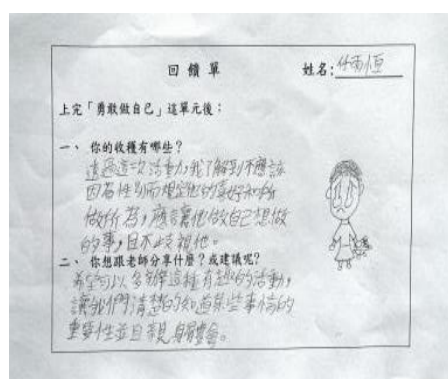 回饋單 姓名:
上完「勇敢做自己」這單元後:
一、你的收穫有哪些?
透過這次活動,我了解到不應該
因為性別而規定他的喜好和所
做所為,應該讓他做自己想做
的事,且不歧視他。
二、你想跟老師分享什麼?或建議呢?
希望可以多辦這種有趣的活動,
讓我們清楚的知道某些事情的
重要性並且親身體會。